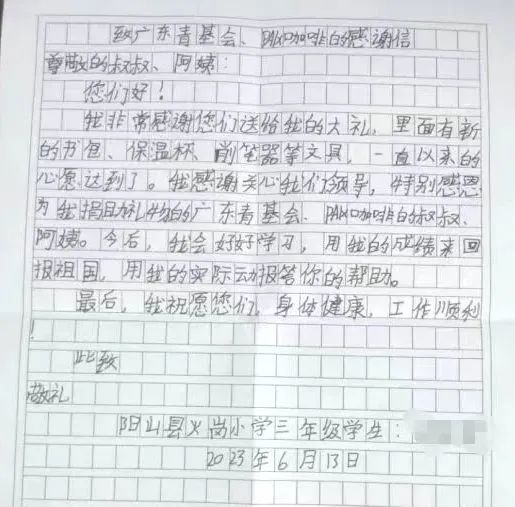 致广东青基会、PAKA咖啡的感谢信
尊敬的叔叔、阿姨：
您们好！
我非常感谢您们送给我的大礼，里面有新
的书包、保温杯、削笔器等文具，一直以来的
心愿达到了。我感谢关心我们领导，特别感恩
为我捐且礼物的广东青基会、咖啡的叔叔、
阿姨。今后，我会好好学习，用我的成绩来回
报祖国，用我的实际动报答你的帮助。
最后，我祝愿您们，身体健康，工作顺利
！
此致
敬礼
阳山县火岗小学三年级学生：
2023年6月13日